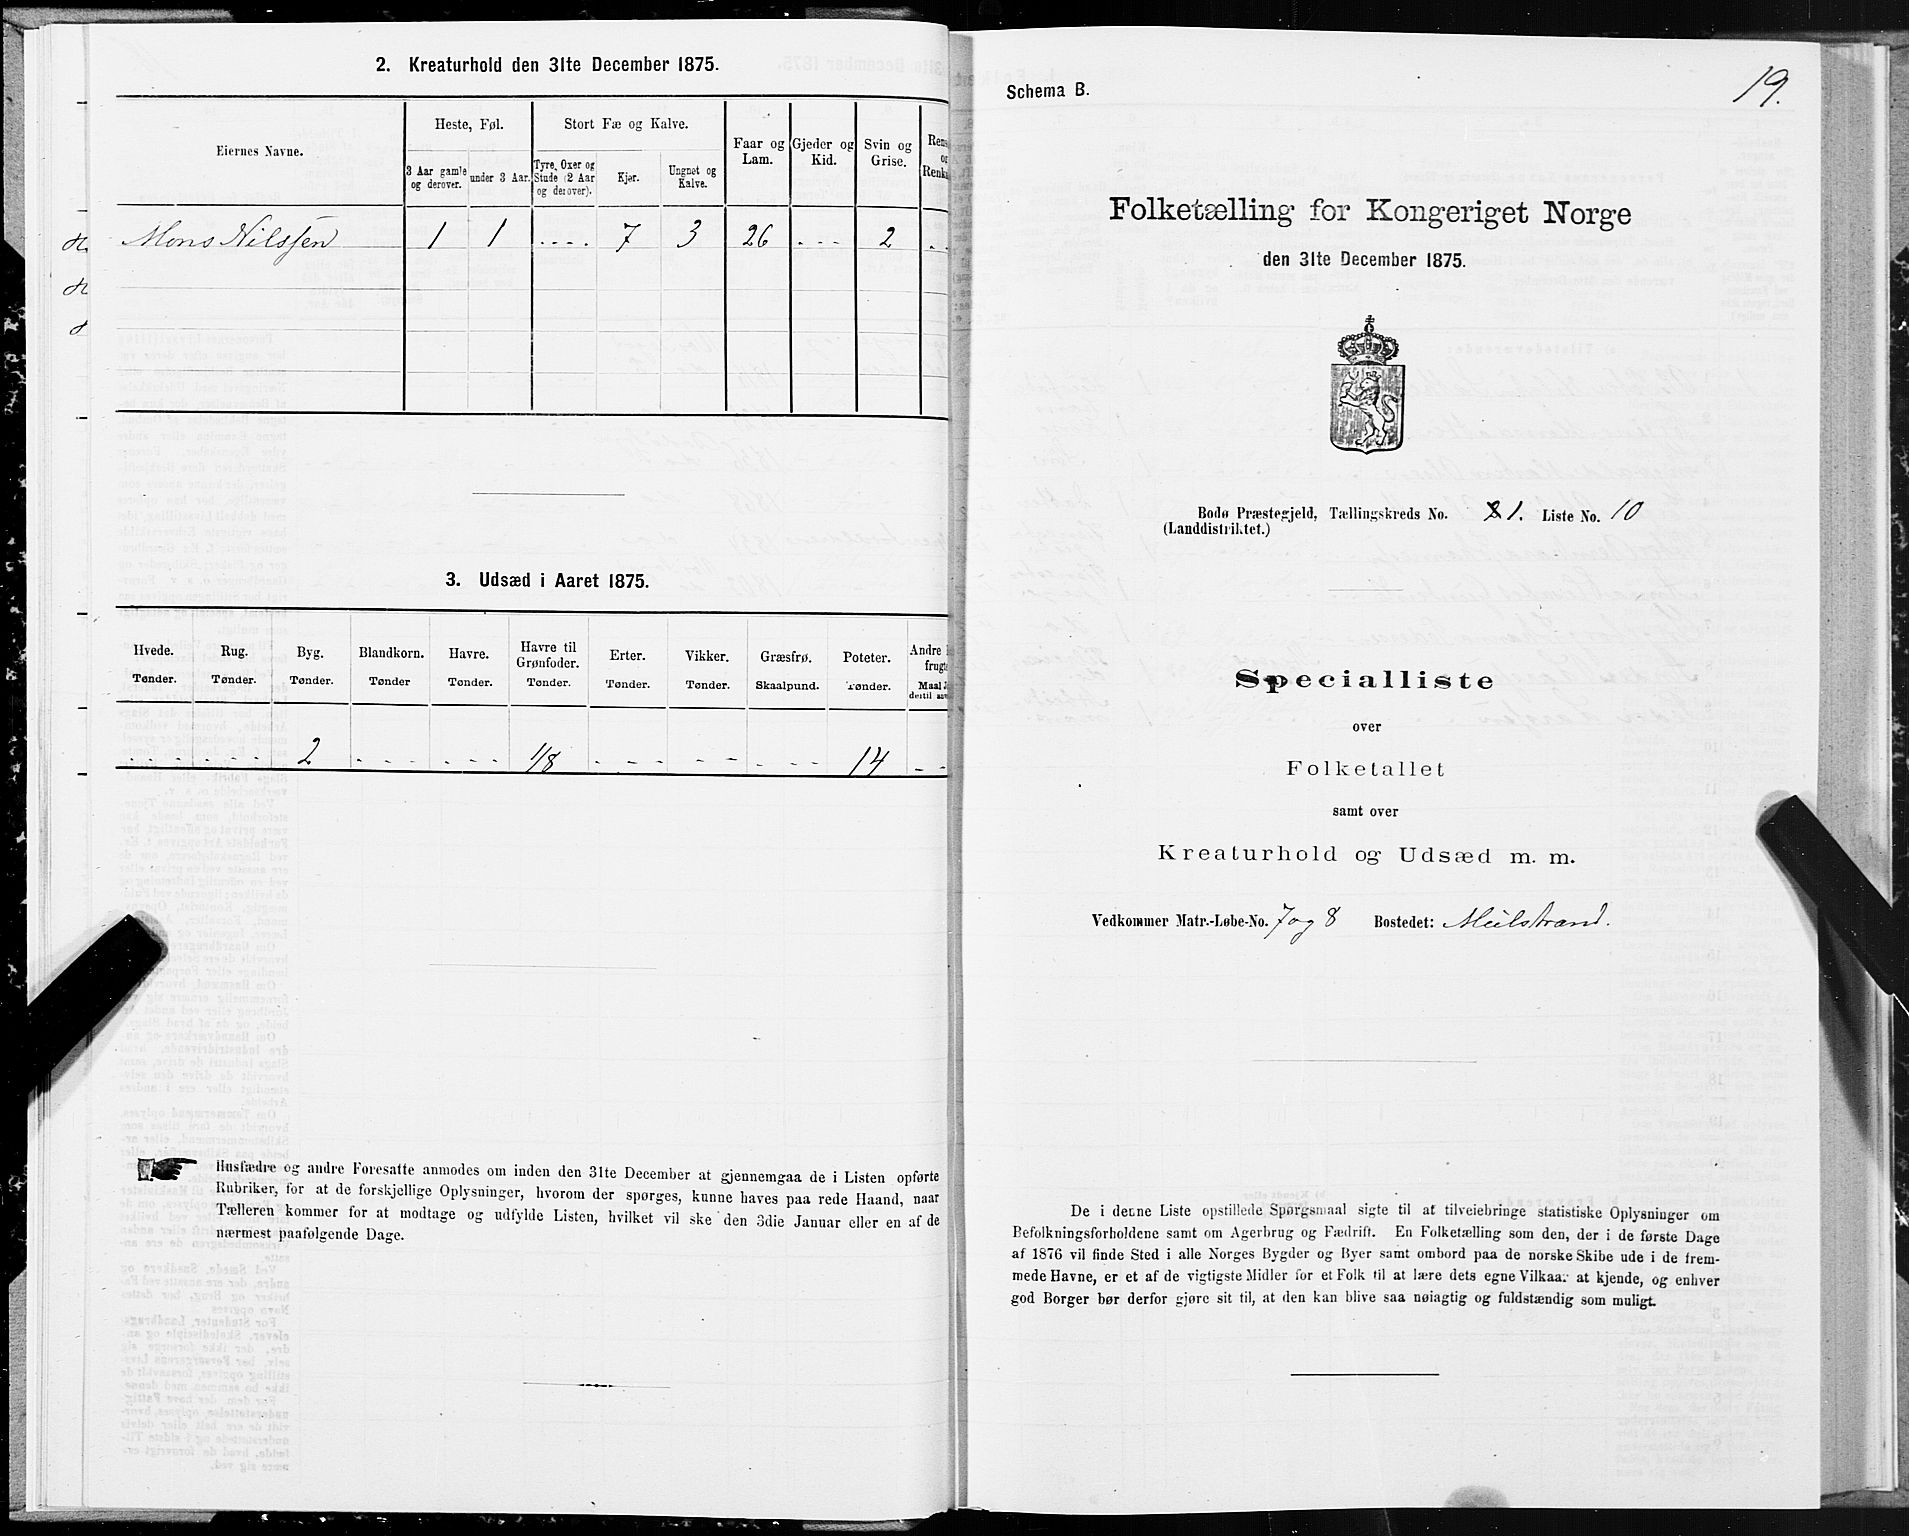 2. Kreaturhold den 31te December 1875.
Eiernes Navne.
Heste, Føl.
Stort Fæ og Kalve.
Faar og Lam.
Gjeder og Kid.
Svin og Grise.
Rens
or
Renka
3 Aar gamle og derover.
under 3 Aar.
Tyre, Oxer og Stude (2 Aar og derover).
Kjør.
Ungnøt og Kalve.
Mons Nilssen 1 1 .... 7 3 26 ... 2 ..
3. Udsæd i Aaret 1875.
Hvede. Rug. Byg. Blandkorn. Havre. Havre til Grønfoder. Erter. Vikker. Græsfrø. Poteter. Andre
frugt
Tønder. Tønder. Tønder. Tønder Tønder. Tønder. Tønder. Tønder. Skaalpund. Tønder. Maal
.... ... 2 .... ... 1/8 .... ... ... 14 ..
Husfædre og andre Foresatte anmodes om inden den 31te December at gjennemgaa de i Listen opførte
Rubriker, for at de forskjellige Oplysninger, hvorom der spørges, kunne haves paa rede Haand, naar
Tælleren kommer for at modtage og udfylde Listen, hvilket vil ske den 3die Januar eller en af de
nærmest paafølgende Dage.
Schema B.
19.
Folketælling for Kongeriget Norge
den 31te December 1875.
Bodø Præstegjeld, Tællingskreds No. 1. Liste No. 10
(Landdistriktet.)
Specialliste
over
Folketallet
samt over
Kreaturhold og Udsæd m. m.
Vedkommer Matr.-Løbe-No. 7 og 8 Bostedet: Meilstrand.
De i denne Liste opstillede Spørgsmaal sigte til at tilveiebringe statistiske Oplysninger om
Befolkningsforholdene samt om Agerbrug og Fædrift. En Folketælling som den, der i de første Dage
af 1876 vil finde Sted i alle Norges Bygder og Byer samt ombord paa de norske Skibe ude i de frem-
mede Havne, er et af de vigtigste Midler for et Folk til at lære dets egne Vilkaar at kjende, og enhver
god Borger bør derfor gjøre sit til, at den kan blive saa nøiagtig og fuldstændig som muligt.